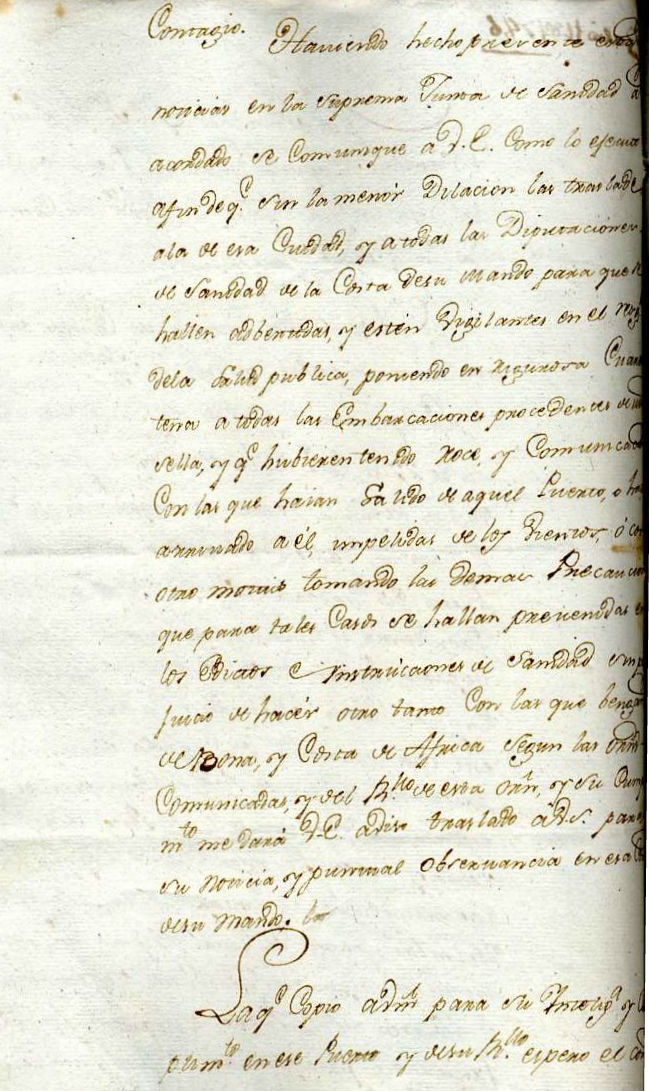 Contagio. Haviendo hecho precente estas
noticias en la Suprema Junta de Sanidad a
acordado se Comunique á V.E. Como lo efecuto
afin de q.e sin la menór Dilacion las traslade
ala de esa Ciudad, y a todas las Diputaciones
de Sanidad de la Costa desu Mando para que se
hallen adbertidas, y estén Vigilantes en el resg
dela Salud publica, poniendo en rigurosa Cuaren
tena a todas las Embarcaciones procedentes de
sella, y q.e hubieren tenido Roce, y Comunicac
Con las que haian Salido de aquel Puerto, o ha
arrivado a él, impelidas de los Vientos, ó con
otro motivo tomando las demas Precaucion
que para tales Casos se hallan prevenidas en
los Edictos e Ynstrucciones de Sanidad sin per
Juicio de hacér otro tanto Con las que bengan
de Bona, y Costa de Africa segun las orns
Comunicadas, y del R.llo de esta Orn, y su Cump
m.to me dará V.E. aviso traslado á V.S. para
su noticia, y puntual Observancia en esa
desu Mando.
La q.e Copio a Vm para su Yntelig.a y C
plim.to en ese Puerto y desu R.llo espero el